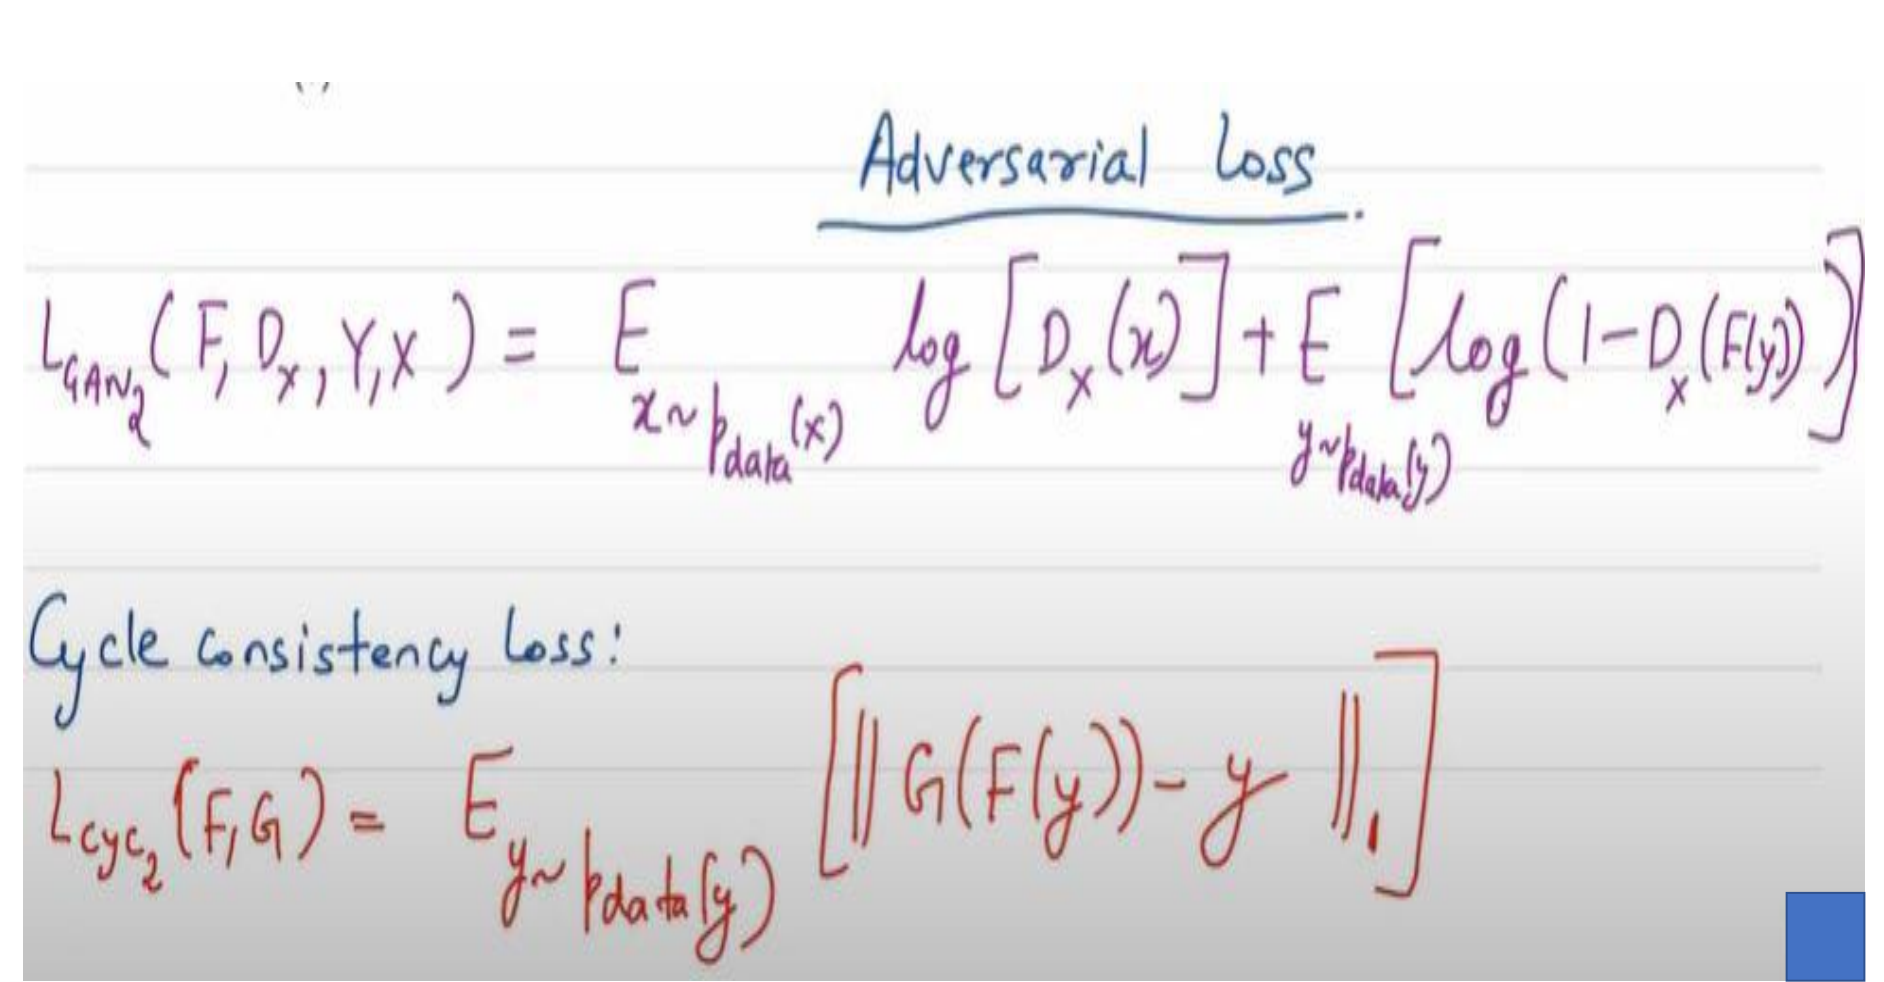 Adversarial Loss
L_GAN₂ (F, D_x, Y, X) = E_{x~p_data(x)} log [D_x(x)] + E_{y~p_data(y)} [log(1-D_x(F(y)))]
Cycle consistency Loss:
L_cyc₂ (F, G) = E_{y~p_data(y)} [||G(F(y)) - y||₁]